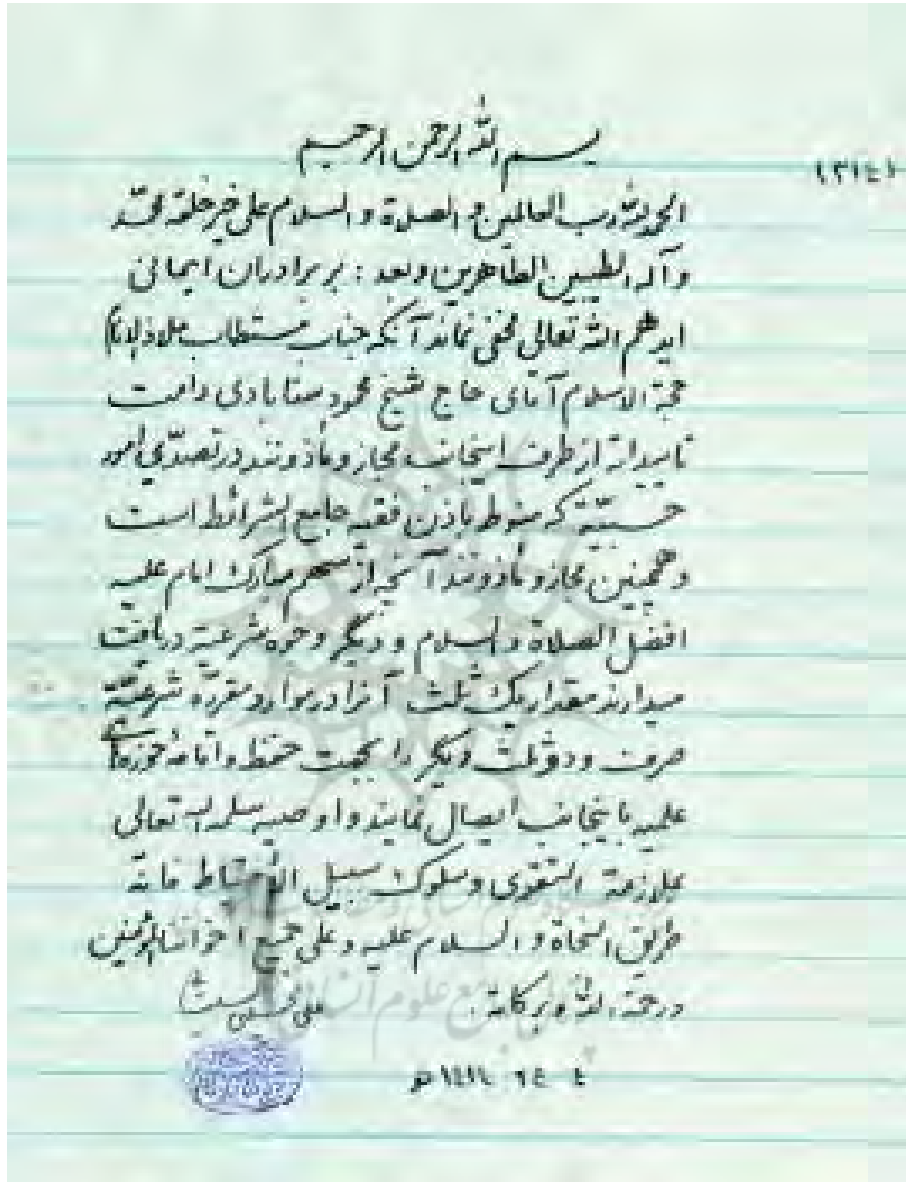 بسم الله الرحمن الرحيم
الحمد لله رب العالمين و الصلاة و السلام علی خیر خلقه محمد
و آله الطیبین الطاهرین وبعد : بر برادران ایمانی
ایدهم الله تعالی مخفی نماند آنکه جناب مستطاب ملاذ الانام
حجة الاسلام آقای حاج شیخ محمود سنابادی دامت
تاییداته از طرف اینجانب مجاز و مأذونند در تصدّی امور
حسبیّة که منوط باذن فقیه جامع الشرائط است
و همچنین مجاز و مأذونند آنچه از سهم مبارک امام علیه
افضل الصلاة و السلام و دیگر وجوه شرعیة دریافت
میدارند مقدار یک ثلث آنرا در موارد مقرره شرعیّة
صرف و دو ثلث دیگر را بجهت حفظ و اقامهٔ حوزه‌های
علمیه باینجانب ایصال نمایند و اوصیه سلمه الله تعالی
بملازمة التقوی و سلوک سبیل الاحتیاط فانه
طریق النجاة و السلام علیه و علی جمیع اخواننا المؤمنین
و رحمة الله و برکاته .
علوم انسانی